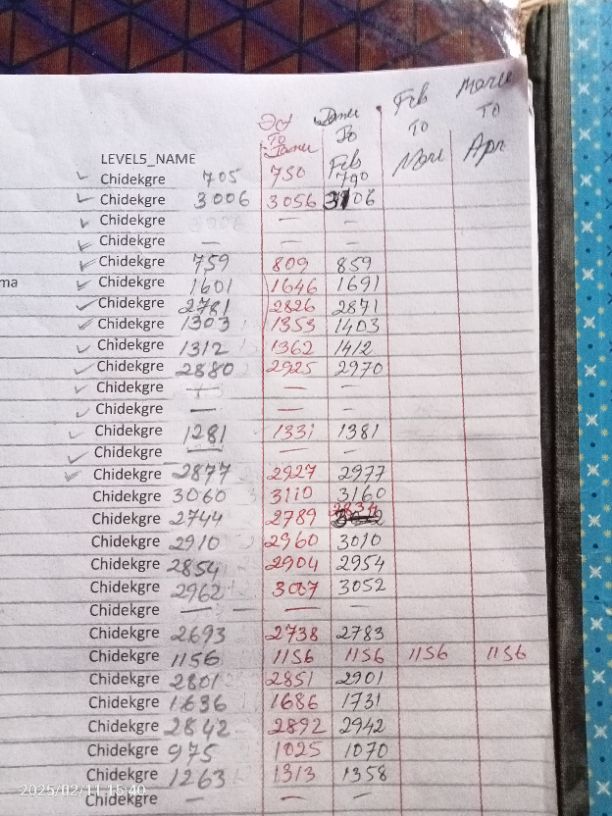 Oct To Janu Janu To Feb Feb To Mar March To Apr
LEVEL5_NAME
Chidekgre 705 750 790
Chidekgre 3006 3056 3106
Chidekgre — —
Chidekgre — — —
Chidekgre 759 809 859
ma Chidekgre 1601 1646 1691
Chidekgre 2781 2826 2871
Chidekgre 1303 1353 1403
Chidekgre 1312 1362 1412
Chidekgre 2880 2925 2970
Chidekgre — — —
Chidekgre — — —
Chidekgre 1281 1331 1381
Chidekgre — — —
Chidekgre 2877 2927 2977
Chidekgre 3060 3110 3160
Chidekgre 2744 2789 2834
Chidekgre 2910 2960 3010
Chidekgre 2854 2904 2954
Chidekgre 2962 3007 3052
Chidekgre — — —
Chidekgre 2693 2738 2783
Chidekgre 1156 1156 1156 1156 1156
Chidekgre 2801 2851 2901
Chidekgre 1636 1686 1731
Chidekgre 2842 2892 2942
Chidekgre 975 1025 1070
Chidekgre 1263 1313 1358
Chidekgre — — —
2025/02/11 15:40